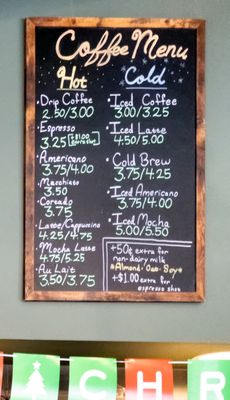 Coffee Menu
Hot
Drip Coffee
2.50/3.00
Espresso
3.25 +$1.00 Extra Shot
Americano
3.75/4.00
Macchiato
3.50
Corcado
3.75
Latte/Cappuccino
4.25/4.75
Mocha Latte
4.75/5.25
Au Lait
3.50/3.75
Cold
Iced Coffee
3.00/3.25
Iced Latte
4.50/5.00
Cold Brew
3.75/4.25
Iced Americano
3.75/4.00
Iced Mocha
5.00/5.50
+50¢ extra for
non-dairy milk
*Almond·Oat·Soy*
+$1.00 extra for
espresso shot
CHR